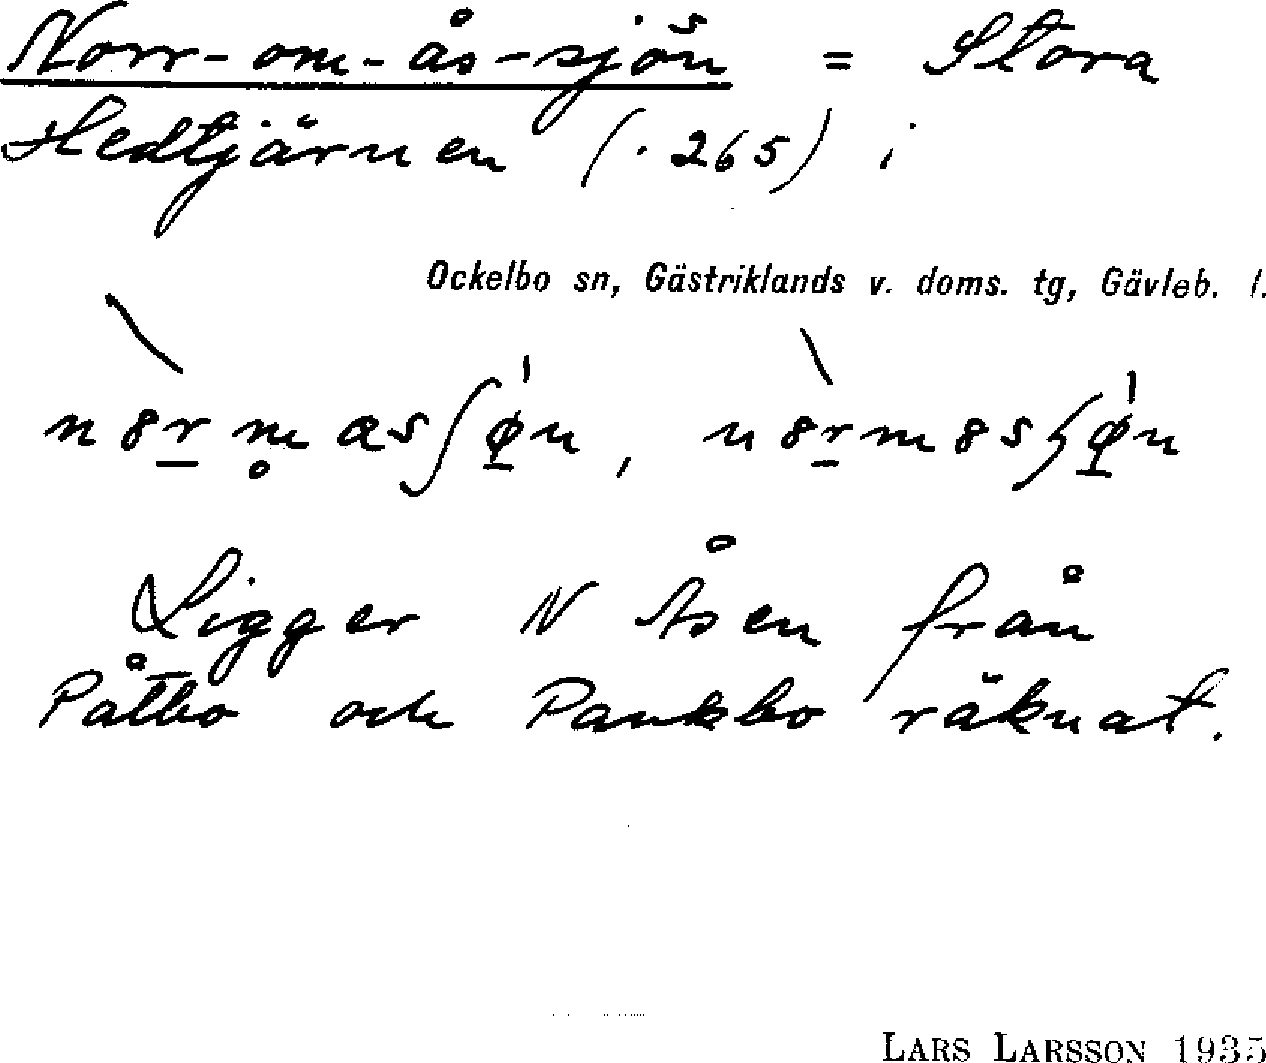 Norr-om-ås-sjön = Stora
Hedtjärnen (.265) i
Ockelbo sn, Gästriklands v. doms. tg, Gävleb. l.
Ligger N Åsen från
Påtbo och Pankbo räknat.
LARS LARSSON 1935